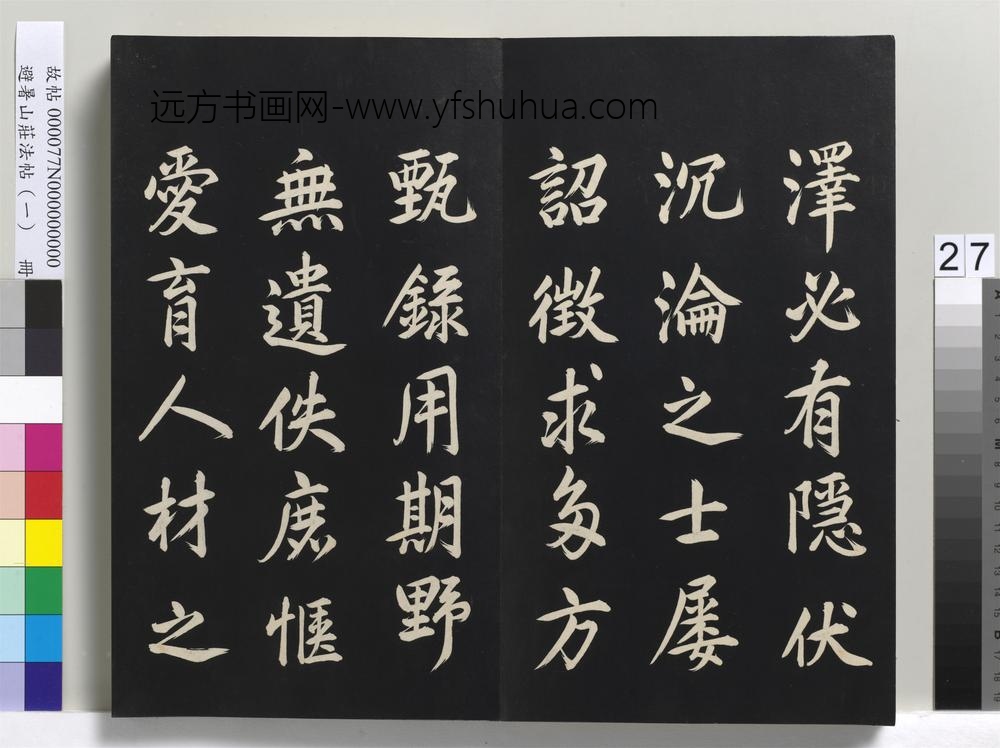 澤必有隱伏
沉淪之士屡
詔徴求多方
甄録用期野
無遺佚庶惬
愛育人材之
远方书画网-www.yfshuhua.com
故帖 000077N000000000
避暑山莊法帖（一） 冊
27